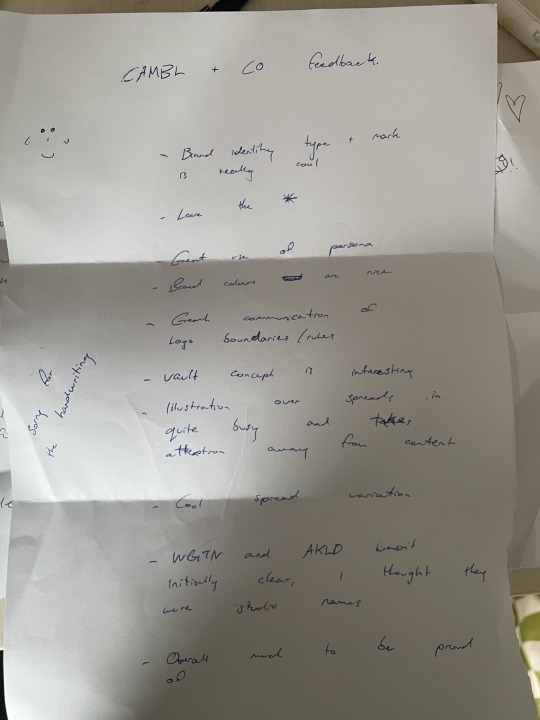 CAMBL + CO Feedback.
- Brand identity type + mark
is really cool
- Love the *
- Great use of persona
- Brand colours are nice
- Great communication of
logo boundaries/rules
- Vault concept is interesting
- Illustration over spreads in
quite busy and takes
attention away from content
- Cool spread variation
- WGTN and AKLD wasn't
initially clear, I thought they
were studio names
- Overall much to be proud
of
Sorry for
the handwriting